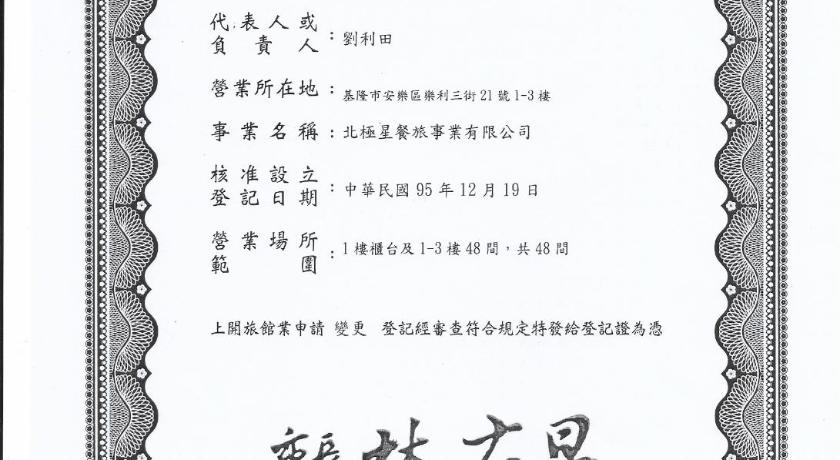 代表人或
負責人：劉利田
營業所在地：基隆市安樂區樂利三街21號1-3樓
事業名稱：北極星餐旅事業有限公司
核准設立
登記日期：中華民國95年12月19日
營業場所
範圍：1樓櫃台及1-3樓48間，共48間
上開旅館業申請 變更 登記經審查符合規定特發給登記證為憑